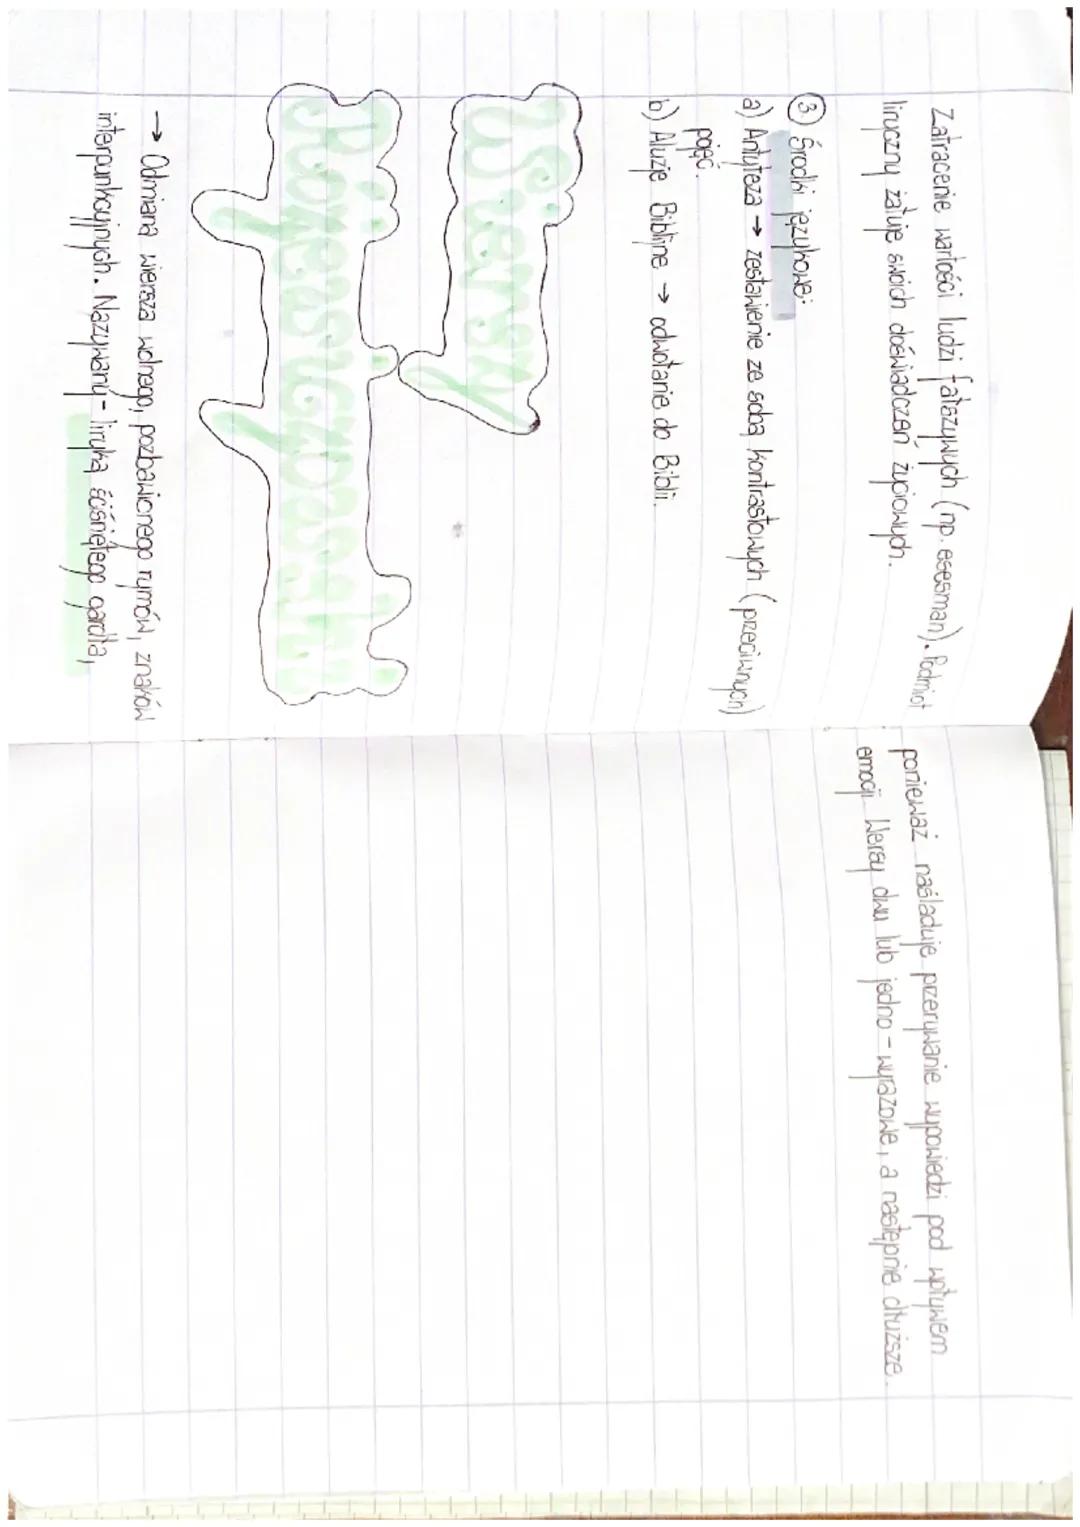 Zatracenie wartości ludzi fałszywych (np. esesman). Podmiot
liryczny żałuje swoich doświadczeń życiowych.
③ Środki językowe:
a) Antyteza → zestawienie ze sobą kontrastowych (przeciwnych)
pojęć.
b) Aluzje Biblijne → odwołanie do Biblii.
Wierszy
Różewiczowski
→ Odmiana wiersza wolnego, pozbawionego rymów, znaków
interpunkcyjnych. Nazywany - liryką ściśniętego gardła,
ponieważ naśladuje przerywanie wypowiedzi pod wpływem
emocji. Wersy dwu lub jedno - wyrazowe, a następnie dłuższe.